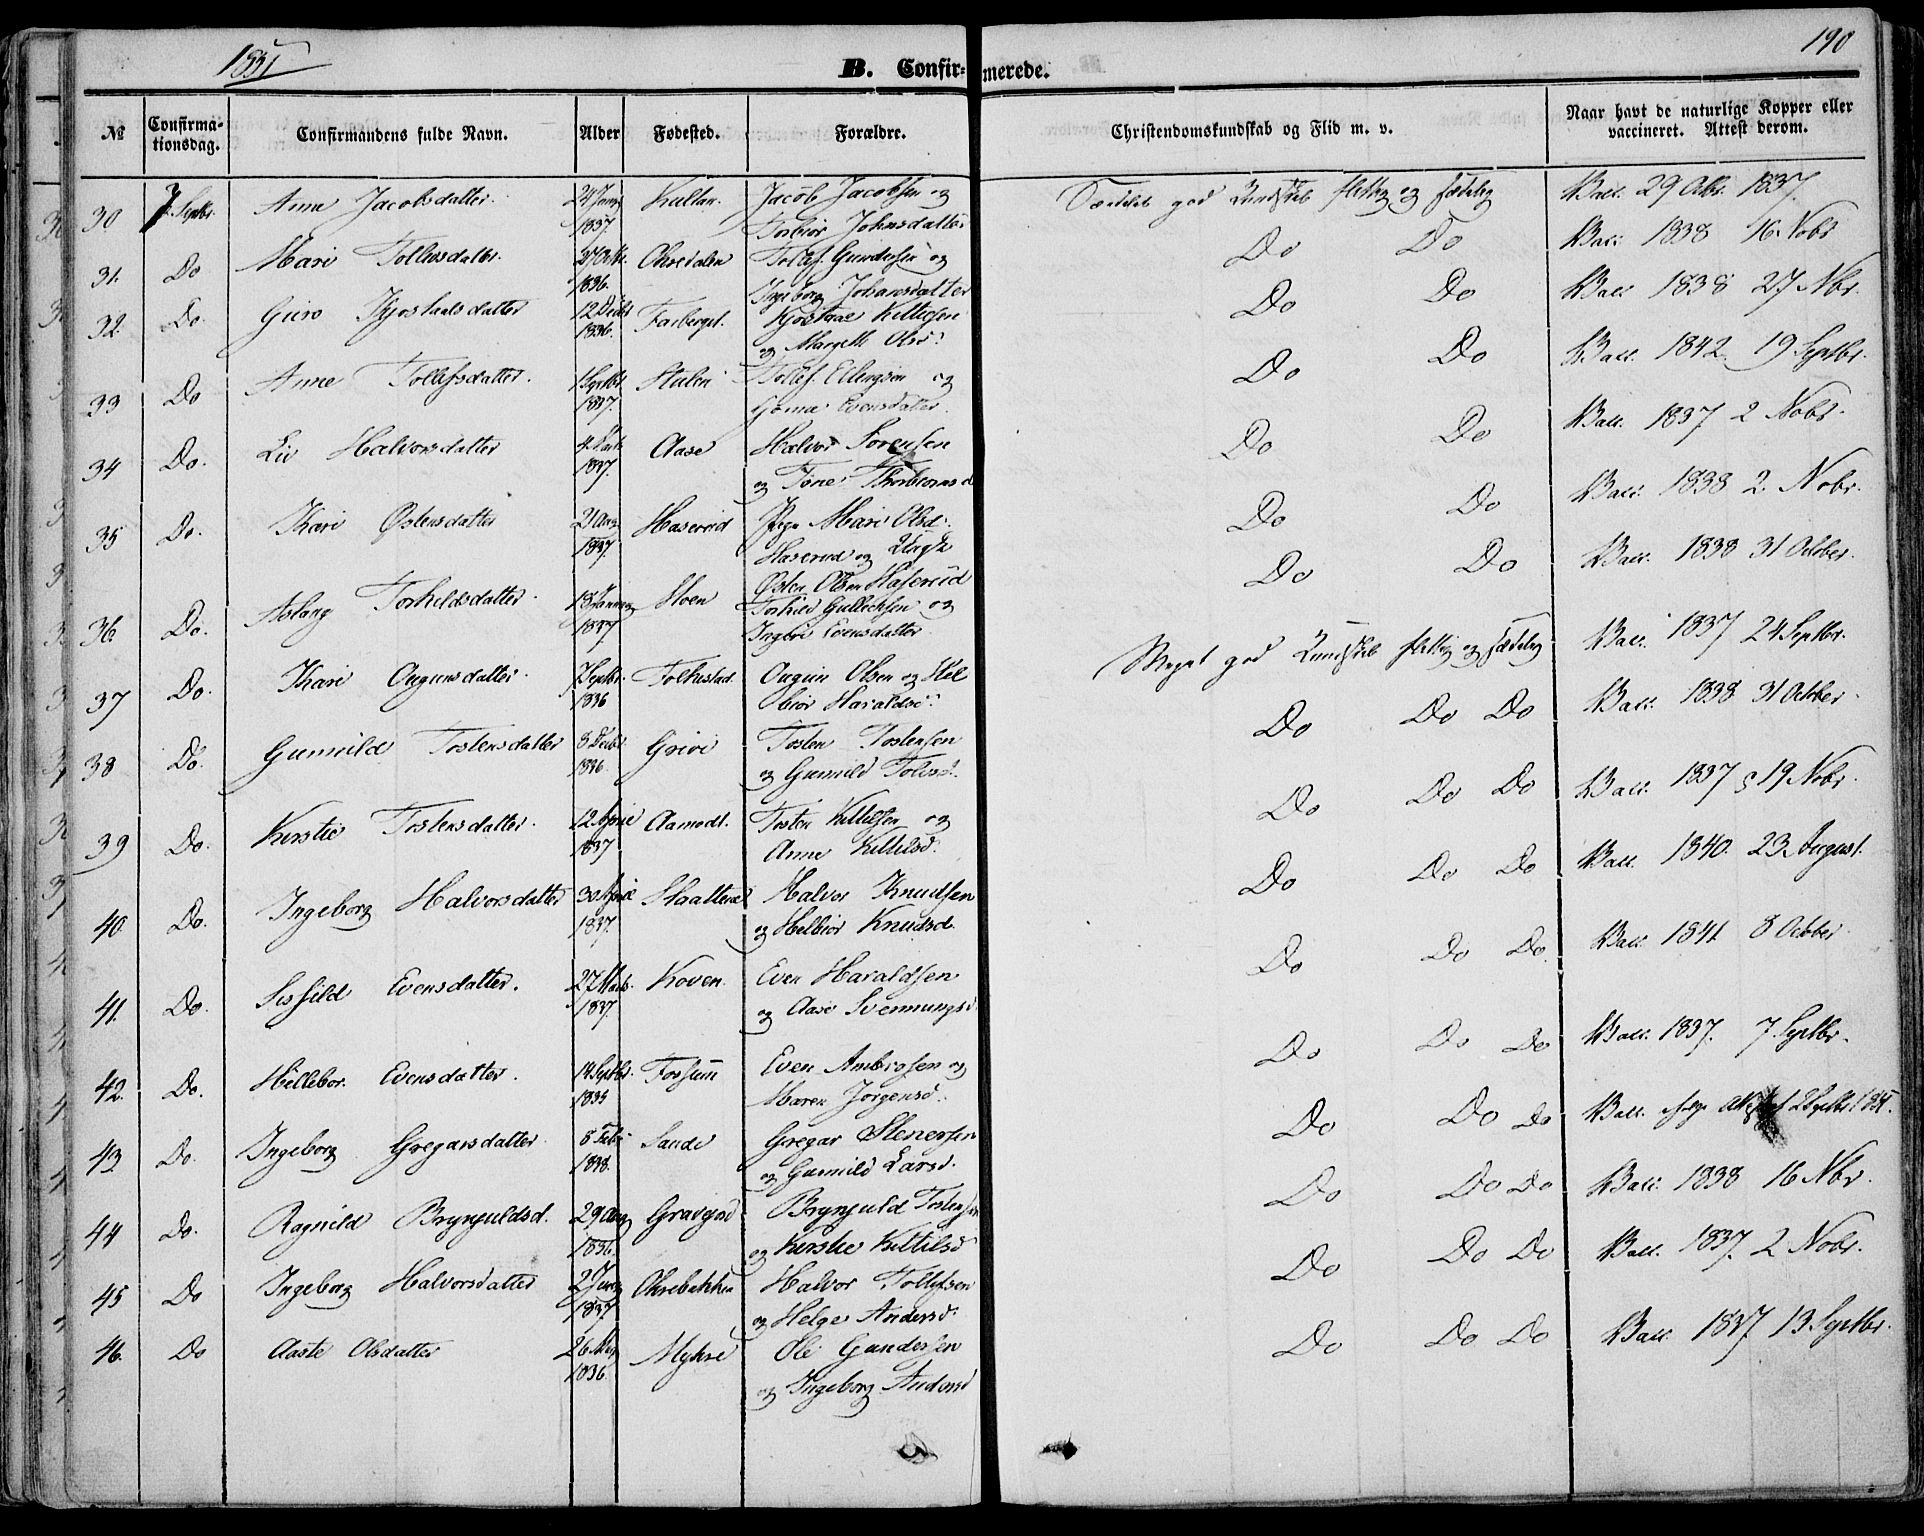 1851
B. Confirmerede.
190
№ Confirmationsdag. Confirmandens fulde Navn. Alder Fødested. Forældre. Christendomskundskab og Flid m. v. Naar havt de naturlige Kopper eller vaccineret. Attest derom.
30 7 Septbr. Anne Jacobsdatter. 1837. Kaltan. Jacob Jacobsen og Torbiør Johnsdatter god Kundskab flittig og sædelig Vacc. 29 Octbr. 1837.
31. Do Mari Tollefsdatter. 1836. Ohredalen Tollef Gundersen og Ingeborg Johansdatter Do Do Vacc. 1838 16 Nobr
32. Do. Guro Kjøstaalsdatter 12 Decbr 1836. Farberget. Kjøstaal Kittilsen og Margith Olsd: Do Do Vacc 1838 27 Nbr.
33 Do Anne Tollefsdatter. 1 Septbr. 1837. Stulen Tollef Ellengsen og Evensdatter. Do Do Vacc. 1842. 19 Septbr.
34 Do. Liv Halvorsdatter 4 1837. Aase Halvor Sørensen og Tone Thorbiørnsd Do Do Vacc. 1837 2 Nobr.
35 Do. Kari Østensdatter 21 Aug 1837. Haserud Pige Mari Olsd: Haserud og Østen Olsen Haserud Do Do Vacc. 1838 2. Nobr.
36 Do. Aslaug Torkildsdatter. 18 January 1837 Moen Torkild Gullichsen og Ingeri Evensdatter. Do Do Vacc. 1838 31 October.
37 Do. Kari Ougunsdatter. 1836 Tolkestad Ougun Olsen og Helbiør Haraldsd: Meget god Kundskab flittig og sædelig Vacc. 1837 24 Septbr.
38 Do. Gunnild Tostensdatter 8 Decbr 1836. Grivi Tosten Tostensen og Gunnild Tolvsd. Do Do Do Vacc. 1838 31 October
39 Do. Kirstie Tostensdatter. 12 April 1837 Aamodt. Tosten Kittilsen og Anne Kittilsd. Do Do Do Vacc. 1837 19 Nobr.
40. Do. Ingeborg Halvorsdatter 30 April 1837. Halvor Knudsen og Helbiør Knudsd. Do Do Do Vacc. 1840. 23 August.
41. Do. Sissild Evensdatter. 27 Marts. 1837. Koven. Even Haraldsen og Aase Svennungsd. Do Do Do. Vacc. 1841 8 October
42. Do. Hellebor. Evensdatter. 14 Septbr. 1835 Fossum Even Ambrosen og Maren Jørgensd. Do Do Do Vacc. 1837. 7 Septbr.
43. Do. Ingeborg Gregarsdatter 8 Febr 1838. Sande Gregar Stenersen og Gunnild Larsd. Do Do Do Vacc. ifølge Attest af Septbr 1851.
44 Do. Ragnild Brynjuldsd. 29 Aug 1836. Gravgod Brynjuld Tostensen og Kirstie Kittilsd Do Do Do Vacc. 1838 16 Nbr.
45 Do Ingeborg Halvorsdatter 2 1837. Ohrebakken Halvor Tollefsen og Helge Andersd. Do Do Do Vacc. 1837. 2 Nobr.
46. Do Aaste Olsdatter 26 1836. Myhre Ole Gundersen og Ingeborg Andersd Do Do Do Vacc. 1837. 13 Septbr.